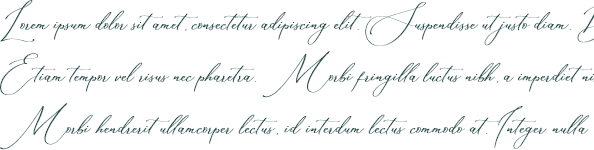 Lorem ipsum dolor sit amet, consectetur adipiscing elit. Suspendisse ut justo diam.
Etiam tempor vel risus nec pharetra. Morbi fringilla luctus nibh, a imperdiet
Morbi hendrerit ullamcorper lectus, id interdum lectus commodo at. Integer nulla